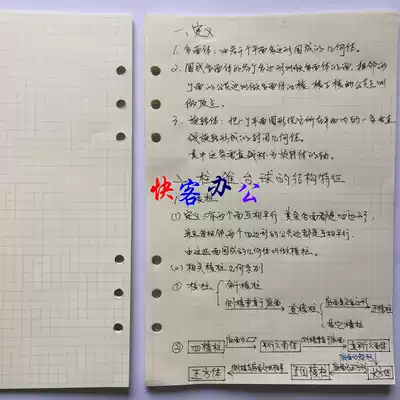 一、定义
1. 多面体：由若干个平面多边形围成的几何体。
2. 围成多面体的各个多边形叫做多面体的面，相邻两
个面的公共边叫做多面体的棱，棱与棱的公共点叫
做顶点。
3. 旋转体：把一个平面图形绕它所在平面内的一条定直
线旋转形成的封闭几何体。
其中这条定直线称为旋转体的轴。
柱 锥 台 球的结构特征
快客办公
1. 棱柱
(1) 定义：有两个面互相平行，其余各面都是四边形，
并且每相邻两个四边形的公共边都互相平行，
由这些面围成的几何体叫做棱柱。
(2) 相关棱柱几何系列
① 棱柱
斜棱柱
侧棱垂直于底面 直棱柱 底面是正多边形 正棱柱
其它棱柱
② 四棱柱 平行六面体 侧棱垂直于底面 直平行六面体
正方体 正四棱柱 长方体